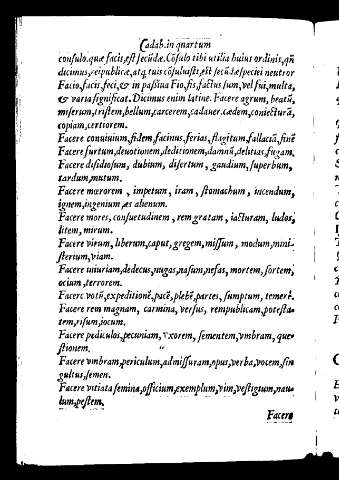 Cadab. in quartum
consulo. quæ facis, est secūdæ. Cōsulo tibi utilia huius ordinis, qñ
dicimus, reipublicæ, atq; tuis cōsuluisti, est secūdæ speciei neutror
Facio, facis, feci, & in passiua Fio, fis, factus sum, vel fui, multa,
& varia significat. Dicimus enim latine. Facere agrum, beatū,
miserum, tristem, bellum, carcerem, cadauer. cædem, coniecturā,
copiam, certiorem.
Facere conuiuium, fidem, facinus, ferias, flagitum, fallaciā, finē
Facere furtum, deuotionem, deditionem, damnū, delitias, fugam.
Facere disidosum, dubium, disertum, gaudium, superbum,
tardum, mutum.
Facere mœrorem, impetum, iram, stomachum, incendum,
ignem, ingenium, æs alienum.
Facere mores, consuetudinem, rem gratam, iacturam, ludos,
litem, mirum.
Facere virum, liberum, caput, gregem, missum, modum, mini-
sterium, viam.
Facere iniuriam, dedecus, nugas, nasum, nefas, mortem, sortem,
ocium, terrorem.
Facere votū, expeditionē, pacē, plebē, partes, sumptum, temerè.
Facere rem magnam, carmina, versus, rempublicam, potesta-
tem, risum, iocum.
Facere pediculos, pecuniam, vxorem, sementem, vmbram, que-
stionem.
Facere vmbram, periculum, admissuram, opus, verba, vocem, sin
gultus, semen.
Facere vitiata femina, officium, exemplum, vim, vestigium, nau-
lum, pestem.
Facere